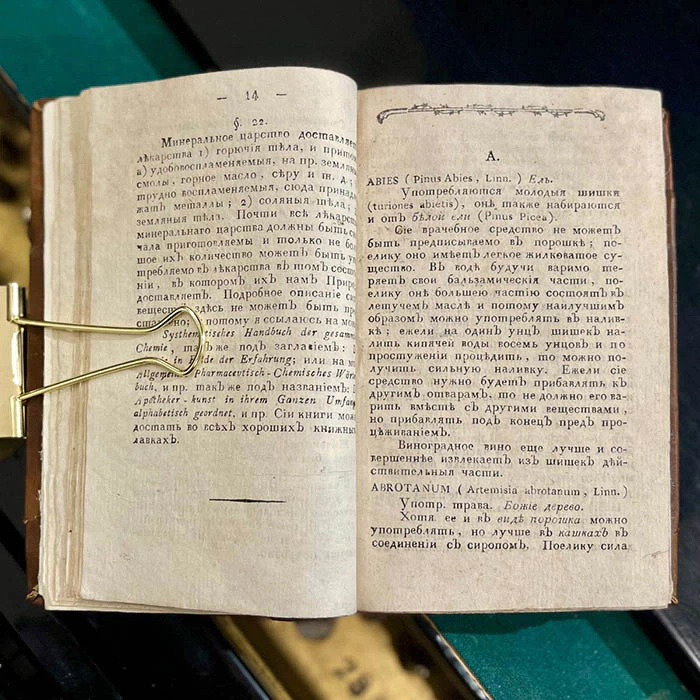 — 14 —
§. 22.
Минеральное царство доставляет
лѣкарства 1) горючія тѣла, и притом
а) удобовоспламеняемыя, на пр. земляныя
смолы, горное масло, сѣру и т. д.;
трудно воспламеняемыя, сюда принад
жатъ металлы; 2) соляныя тѣла;
земляныя тѣла. Почти всѣ лѣкарст
минеральнаго царства должны быть с
чала приготовляемы и только не бол
шое ихъ количество можетъ быть у
требляемо въ лѣкарства въ томъ сост
ніи, въ которомъ ихъ намъ Приро
доставляетъ. Подробное описаніе си
веществъ здѣсь не можетъ быть пр
потому я ссылаюсь на мо
Systhematisches Handbuch der gesam
Chemie, также подъ заглавіемъ:
der Erfahrung; или на
Allgemeines Pharmaceutisch-Chemisches Wört
buch, и пр. также подъ названіемъ:
Apotheker-kunst in ihrem Ganzen Umfang
alphabetisch geordnet, и пр. Сіи книги мож
достать во всѣхъ хорошихъ книжных
лавкахъ.
А.
ABIES (Pinus Abies, Linn.) Ель.
Употребляются молодыя шишки
(turiones abietis), онѣ также набираются
и отъ бѣлой ели (Pinus Picea).
Сіе врачебное средство не можетъ
быть предписываемо въ порошкѣ; по-
елику оно имѣетъ легкое жилковатое су-
щество. Въ водѣ будучи варимо те-
ряетъ свои бальзамическія части, по-
елику онѣ большею частію состоятъ въ
летучемъ маслѣ и потому наилучшимъ
образомъ можно употреблять въ налив-
кѣ; ежели на одинъ унцъ шишекъ на-
лить кипячей воды восемь унцовъ и по
простуженіи процѣдить, то можно по-
лучить сильную наливку. Ежели сіе
средство нужно будетъ прибавлять къ
другимъ отварамъ, то не должно его ва-
рить вмѣстѣ съ другими веществами,
но прибавлять подъ конецъ предъ про-
цѣживаніемъ.
Виноградное вино еще лучше и со-
вершеннѣе извлекаетъ изъ шишекъ дѣй-
ствительныя части.
ABROTANUM (Artemisia abrotanum, Linn.)
Употр. трава. Божіе дерево.
Хотя ее и въ видѣ порошка можно
употреблять, но лучше въ кашкахъ въ
соединеніи съ сиропомъ. Поелику сила
28